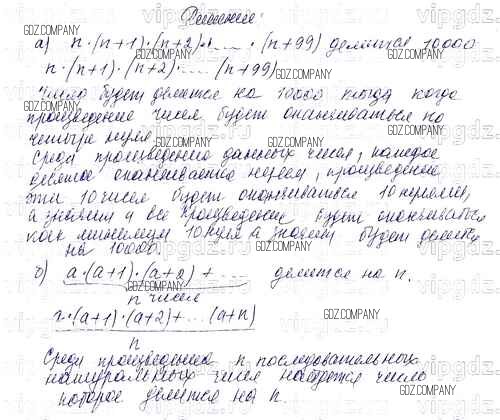 Решение:
а) n·(n+1)·(n+2)·.....·(n+99) делится 10000
n·(n+1)·(n+2)·.....(n+99)
Число будет делится на 10000 тогда когда
произведение чисел будет оканчиваться на
четыре нуля.
Среди произведение данных чисел, каждое
десятое оканчивается нулем, произведение
эти 10 чисел будет оканчиваться 10 нулями,
а значит и все произведение будет оканчиваться
как минимум 10 нуля а значит будет делится
на 10000.
б) a·(a+1)·(a+2)+..... делится на n.
n чисел
·(a+1)·(a+2)+...(a+n)
n
Среди произведения n последовательных
натуральных чисел найдется число
которое делится на n.
GDZ.COMPANY
vipgdz